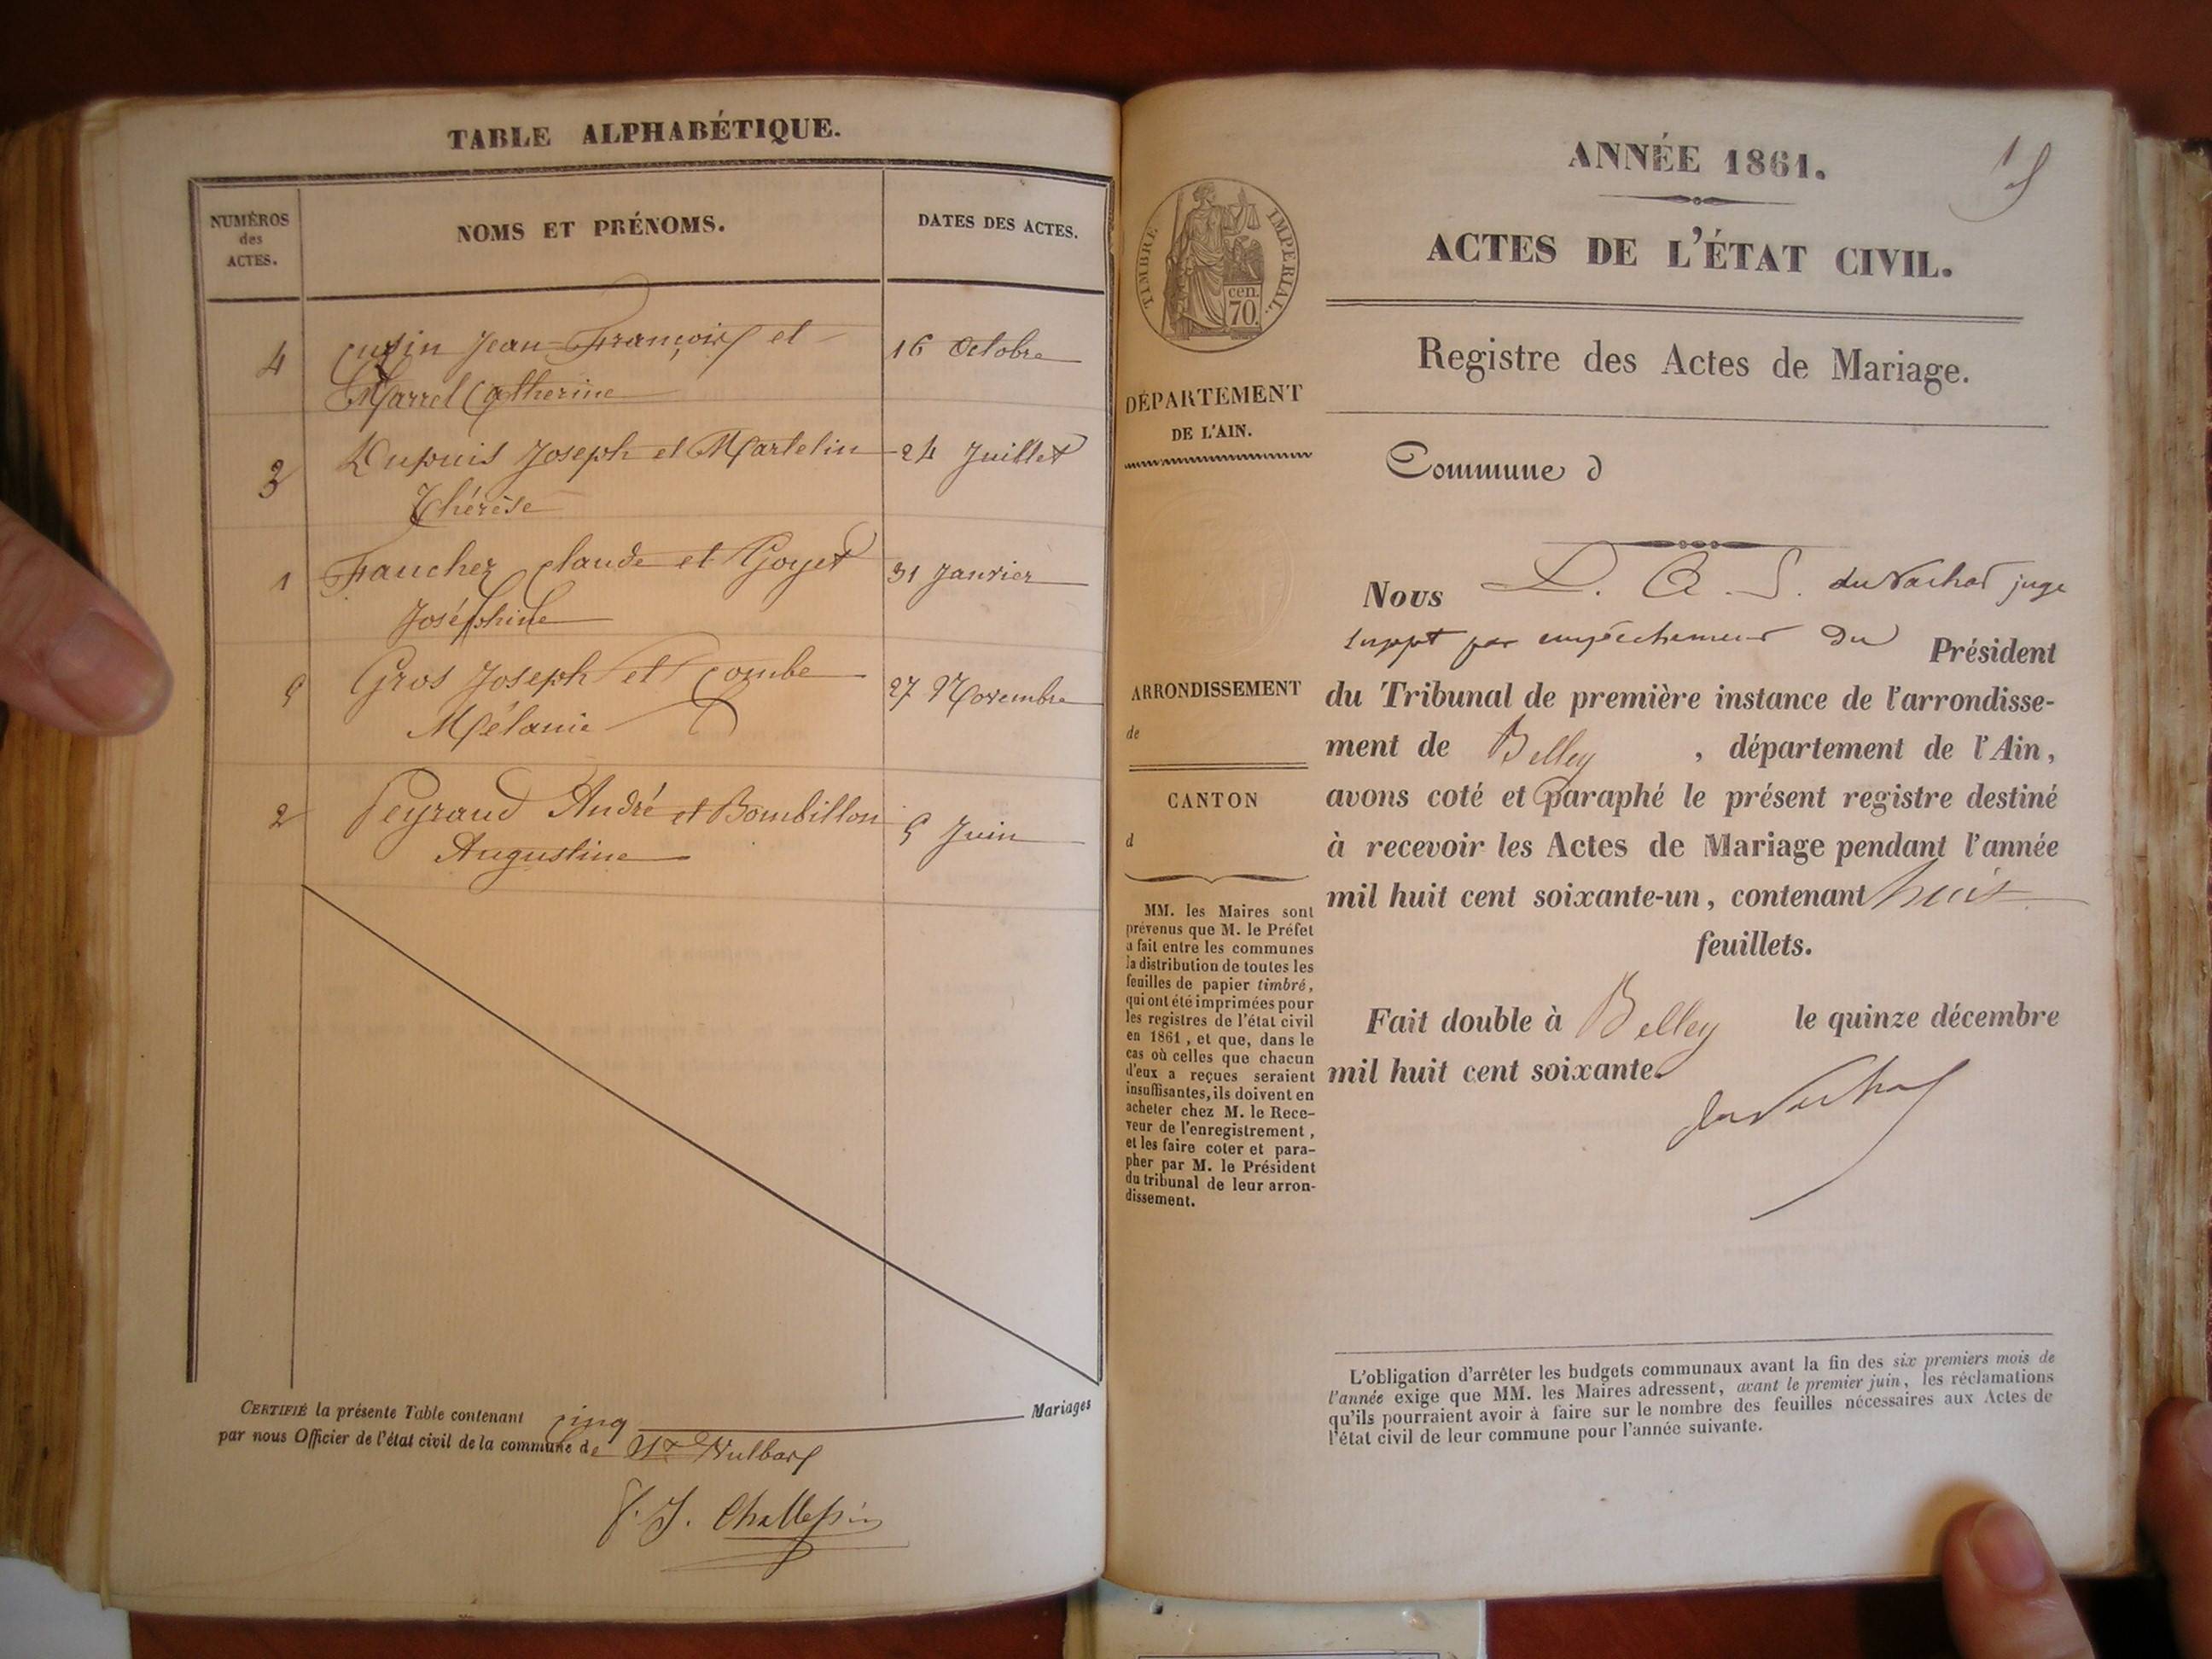 TABLE ALPHABÉTIQUE.
NUMÉROS
des
ACTES.
NOMS ET PRÉNOMS.
DATES DES ACTES.
4 Cusin Jean-François et 16 Octobre
Marrel Catherine
3 Dupuis Joseph et Martelin 24 Juillet
Thérèse
1 Faucher Claude et Goyet 31 Janvier
Joséphine
5 Gros Joseph et Combe 27 Novembre
Mélanie
2 Peyraud André et Bombillon 5 Juin
Augustine
CERTIFIÉ la présente Table contenant cinq Mariages
par nous Officier de l'état civil de la commune de St Vulbas
ANNÉE 1861.
ACTES DE L'ÉTAT CIVIL.
TIMBRE IMPÉRIAL.
cen.
70.
Registre des Actes de Mariage.
DÉPARTEMENT
DE L'AIN.
Commune d
Nous juge
suppt par empêchement du Président
du Tribunal de première instance de l'arrondisse-
ment de Belley , département de l'Ain,
avons coté et paraphé le présent registre destiné
à recevoir les Actes de Mariage pendant l'année
mil huit cent soixante-un, contenant huit
feuillets.
Fait double à Belley le quinze décembre
mil huit cent soixante.
ARRONDISSEMENT
de
CANTON
d
MM. les Maires sont
prévenus que M. le Préfet
a fait entre les communes
la distribution de toutes les
feuilles de papier timbré,
qui ont été imprimées pour
les registres de l'état civil
en 1861, et que, dans le
cas où celles que chacun
d'eux a reçues seraient
insuffisantes, ils doivent en
acheter chez M. le Rece-
veur de l'enregistrement,
et les faire coter et para-
pher par M. le Président
du tribunal de leur arron-
dissement.
L'obligation d'arrêter les budgets communaux avant la fin des six premiers mois de
l'année exige que MM. les Maires adressent, avant le premier juin, les réclamations
qu'ils pourraient avoir à faire sur le nombre des feuilles nécessaires aux Actes de
l'état civil de leur commune pour l'année suivante.